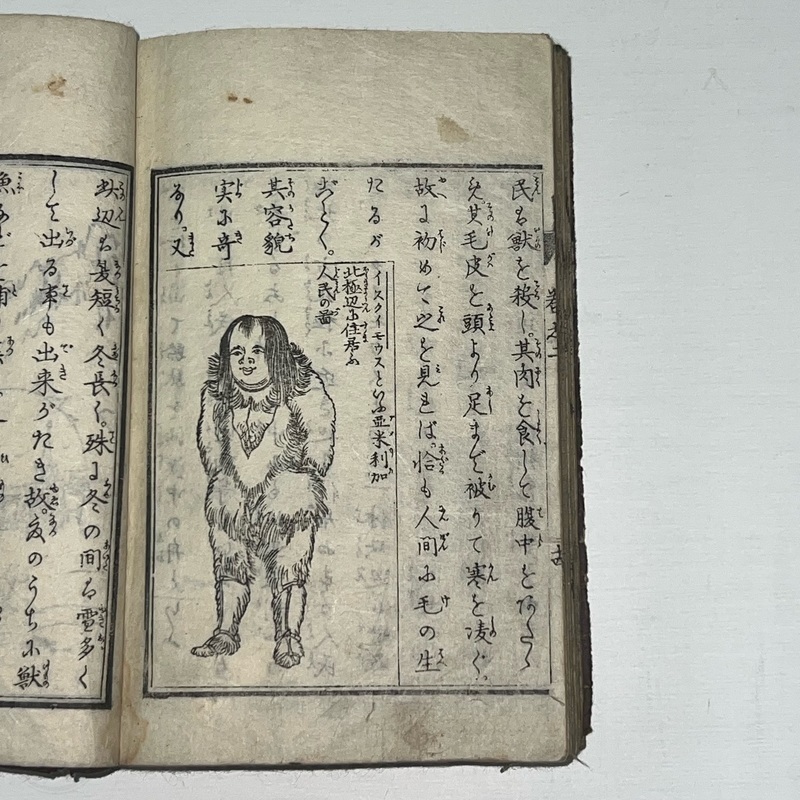 民ハ獣を殺し。其肉を食して腹中をあたゝめ
其毛皮を頭より足まで被りて寒を凌ぐ。
故に初めて之を見れば。恰も人間に毛の生
たるが
ごとく。
其容貌
実に奇
なり。又
イスクイモウスといふ亜米利加
北極辺に住居ふ
人民の図
巻之二
此辺ハ髪短く冬長く。殊に冬の間ハ雪多く
して出る事も出来がたき故。夏のうちに獣
魚